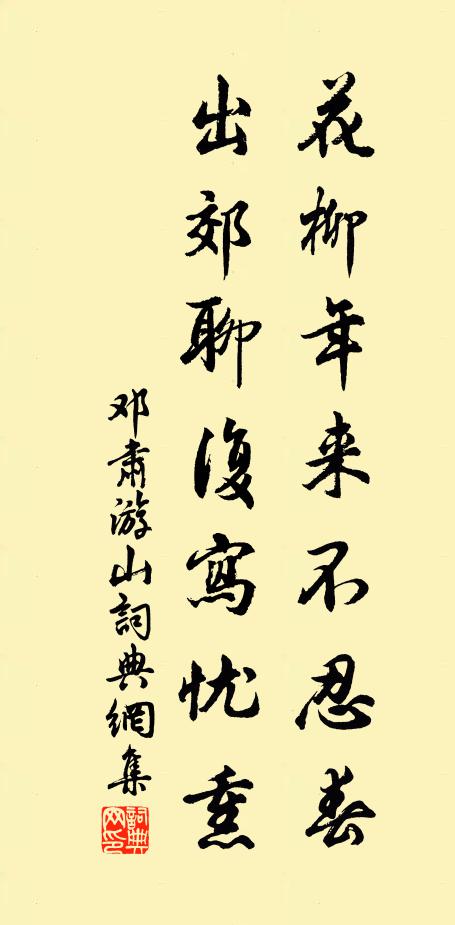 花柳年来不忍春
出郊聊復寫忧熏
邓肃游山詞典網集
詞典网印